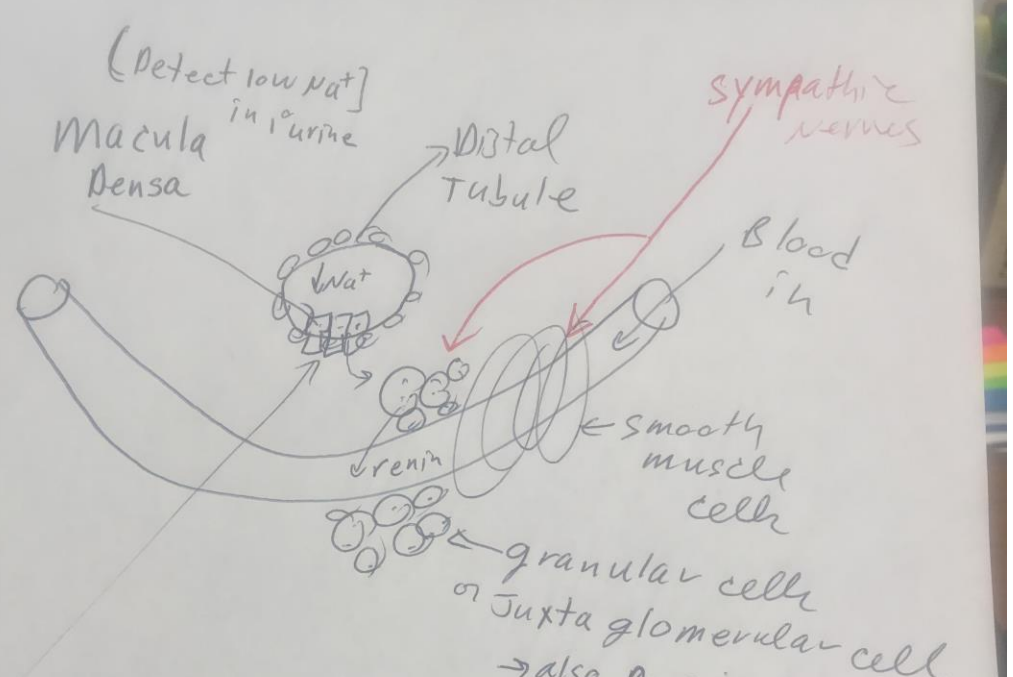 (Detect low Na+]
in 1° urine
Macula
Densa
Distal
Tubule
sympathic
nerves
Blood
in
↓Na+
renin
smooth
muscle
cells
granular cells
or Juxta glomerular cell
→ also